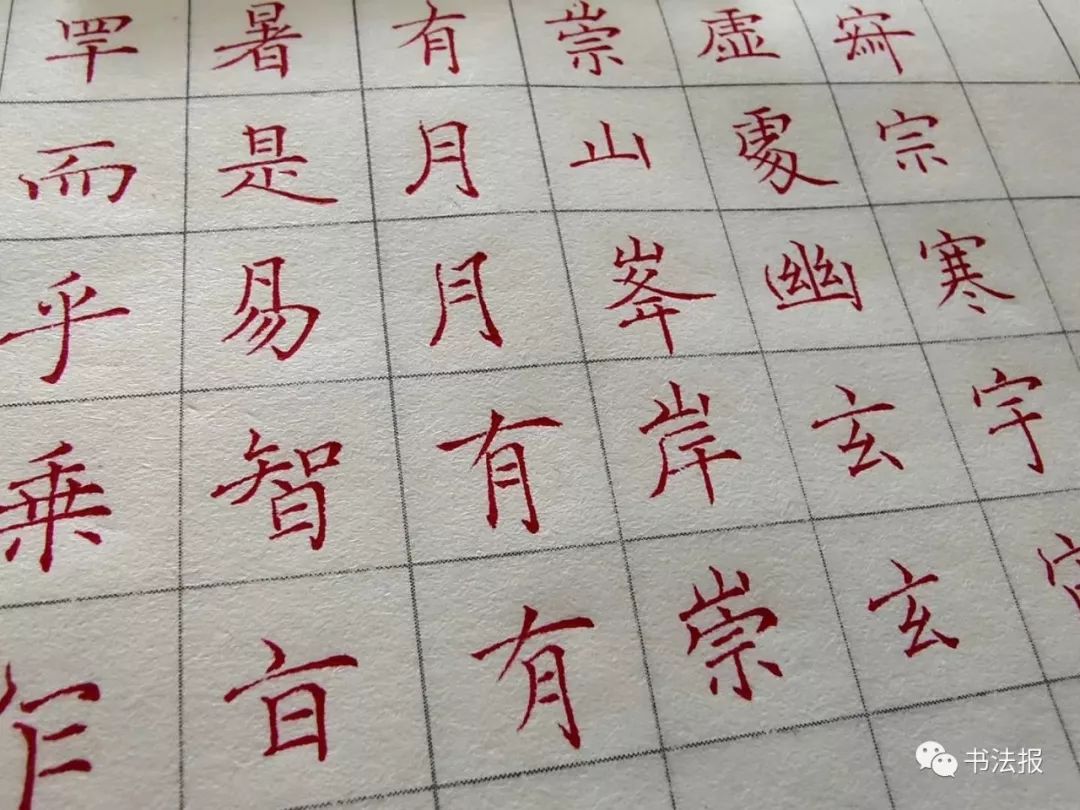 罕 暑 有 崇 虚
而 是 月 山 處 宗
乎 易 月 峯 幽 寒
乘 智 有 岸 玄 宇
乍 有 崇 玄
书法报